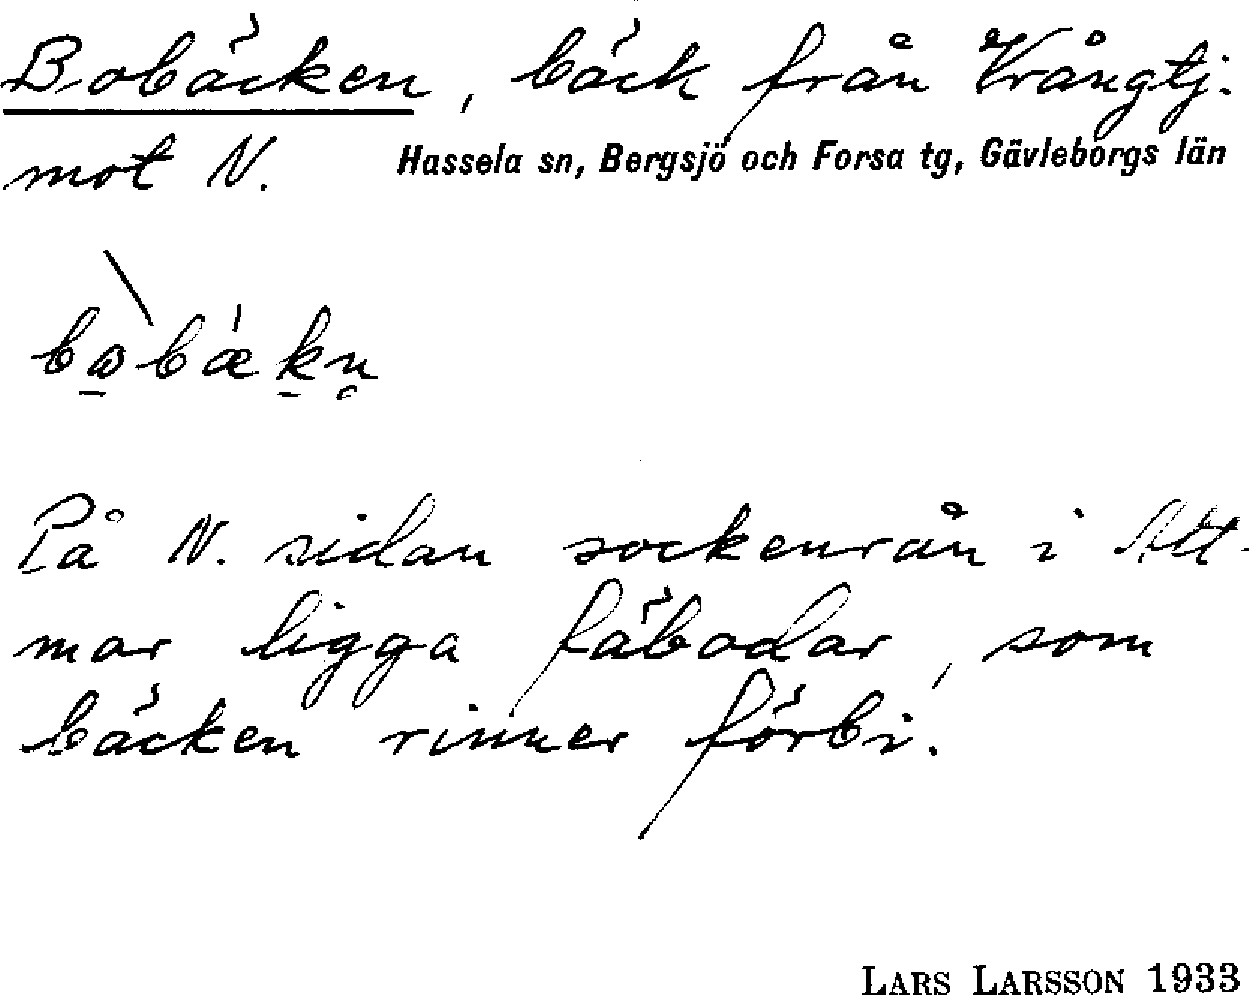 Bobäcken, bäck från Vrångtj.
mot N.
Hassela sn, Bergsjö och Forsa tg, Gävleborgs län
På N. sidan sockenrån i Att-
mar ligga fäbodar, som
bäcken rinner förbi.
LARS LARSSON 1933